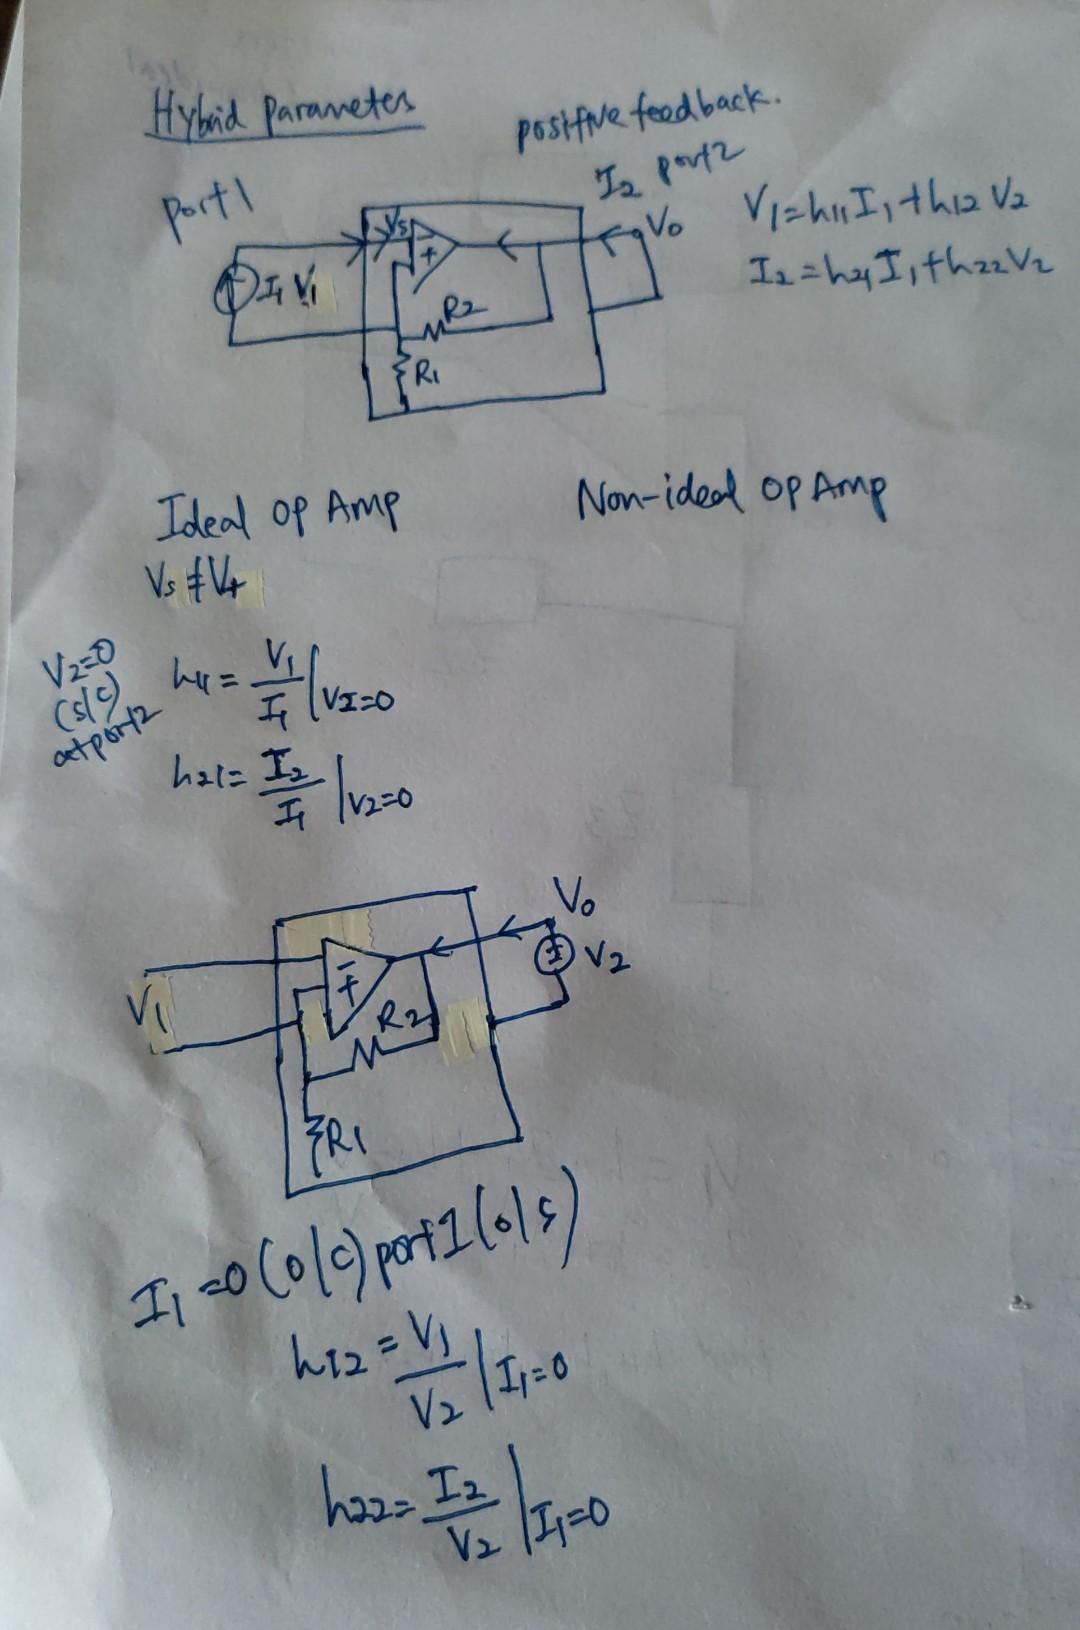 Hybrid Parameters
positive feedback.
port1
I2 port2
Vs
Vo
V1=h11I1+h12 V2
I2=h21I1+h22V2
I1 V1
-
+
R2
R1
Ideal Op Amp
Non-ideal Op Amp
Vs≠V+
V2=0
(s/c)
at port2
h11= V1/I1 |V2=0
h21= I2/I1 |V2=0
Vo
V2
V1
-
+
R2
R1
I1=0 (o/c) port1 (o/s)
h12 = V1/V2 | I1=0
h22= I2/V2 | I1=0